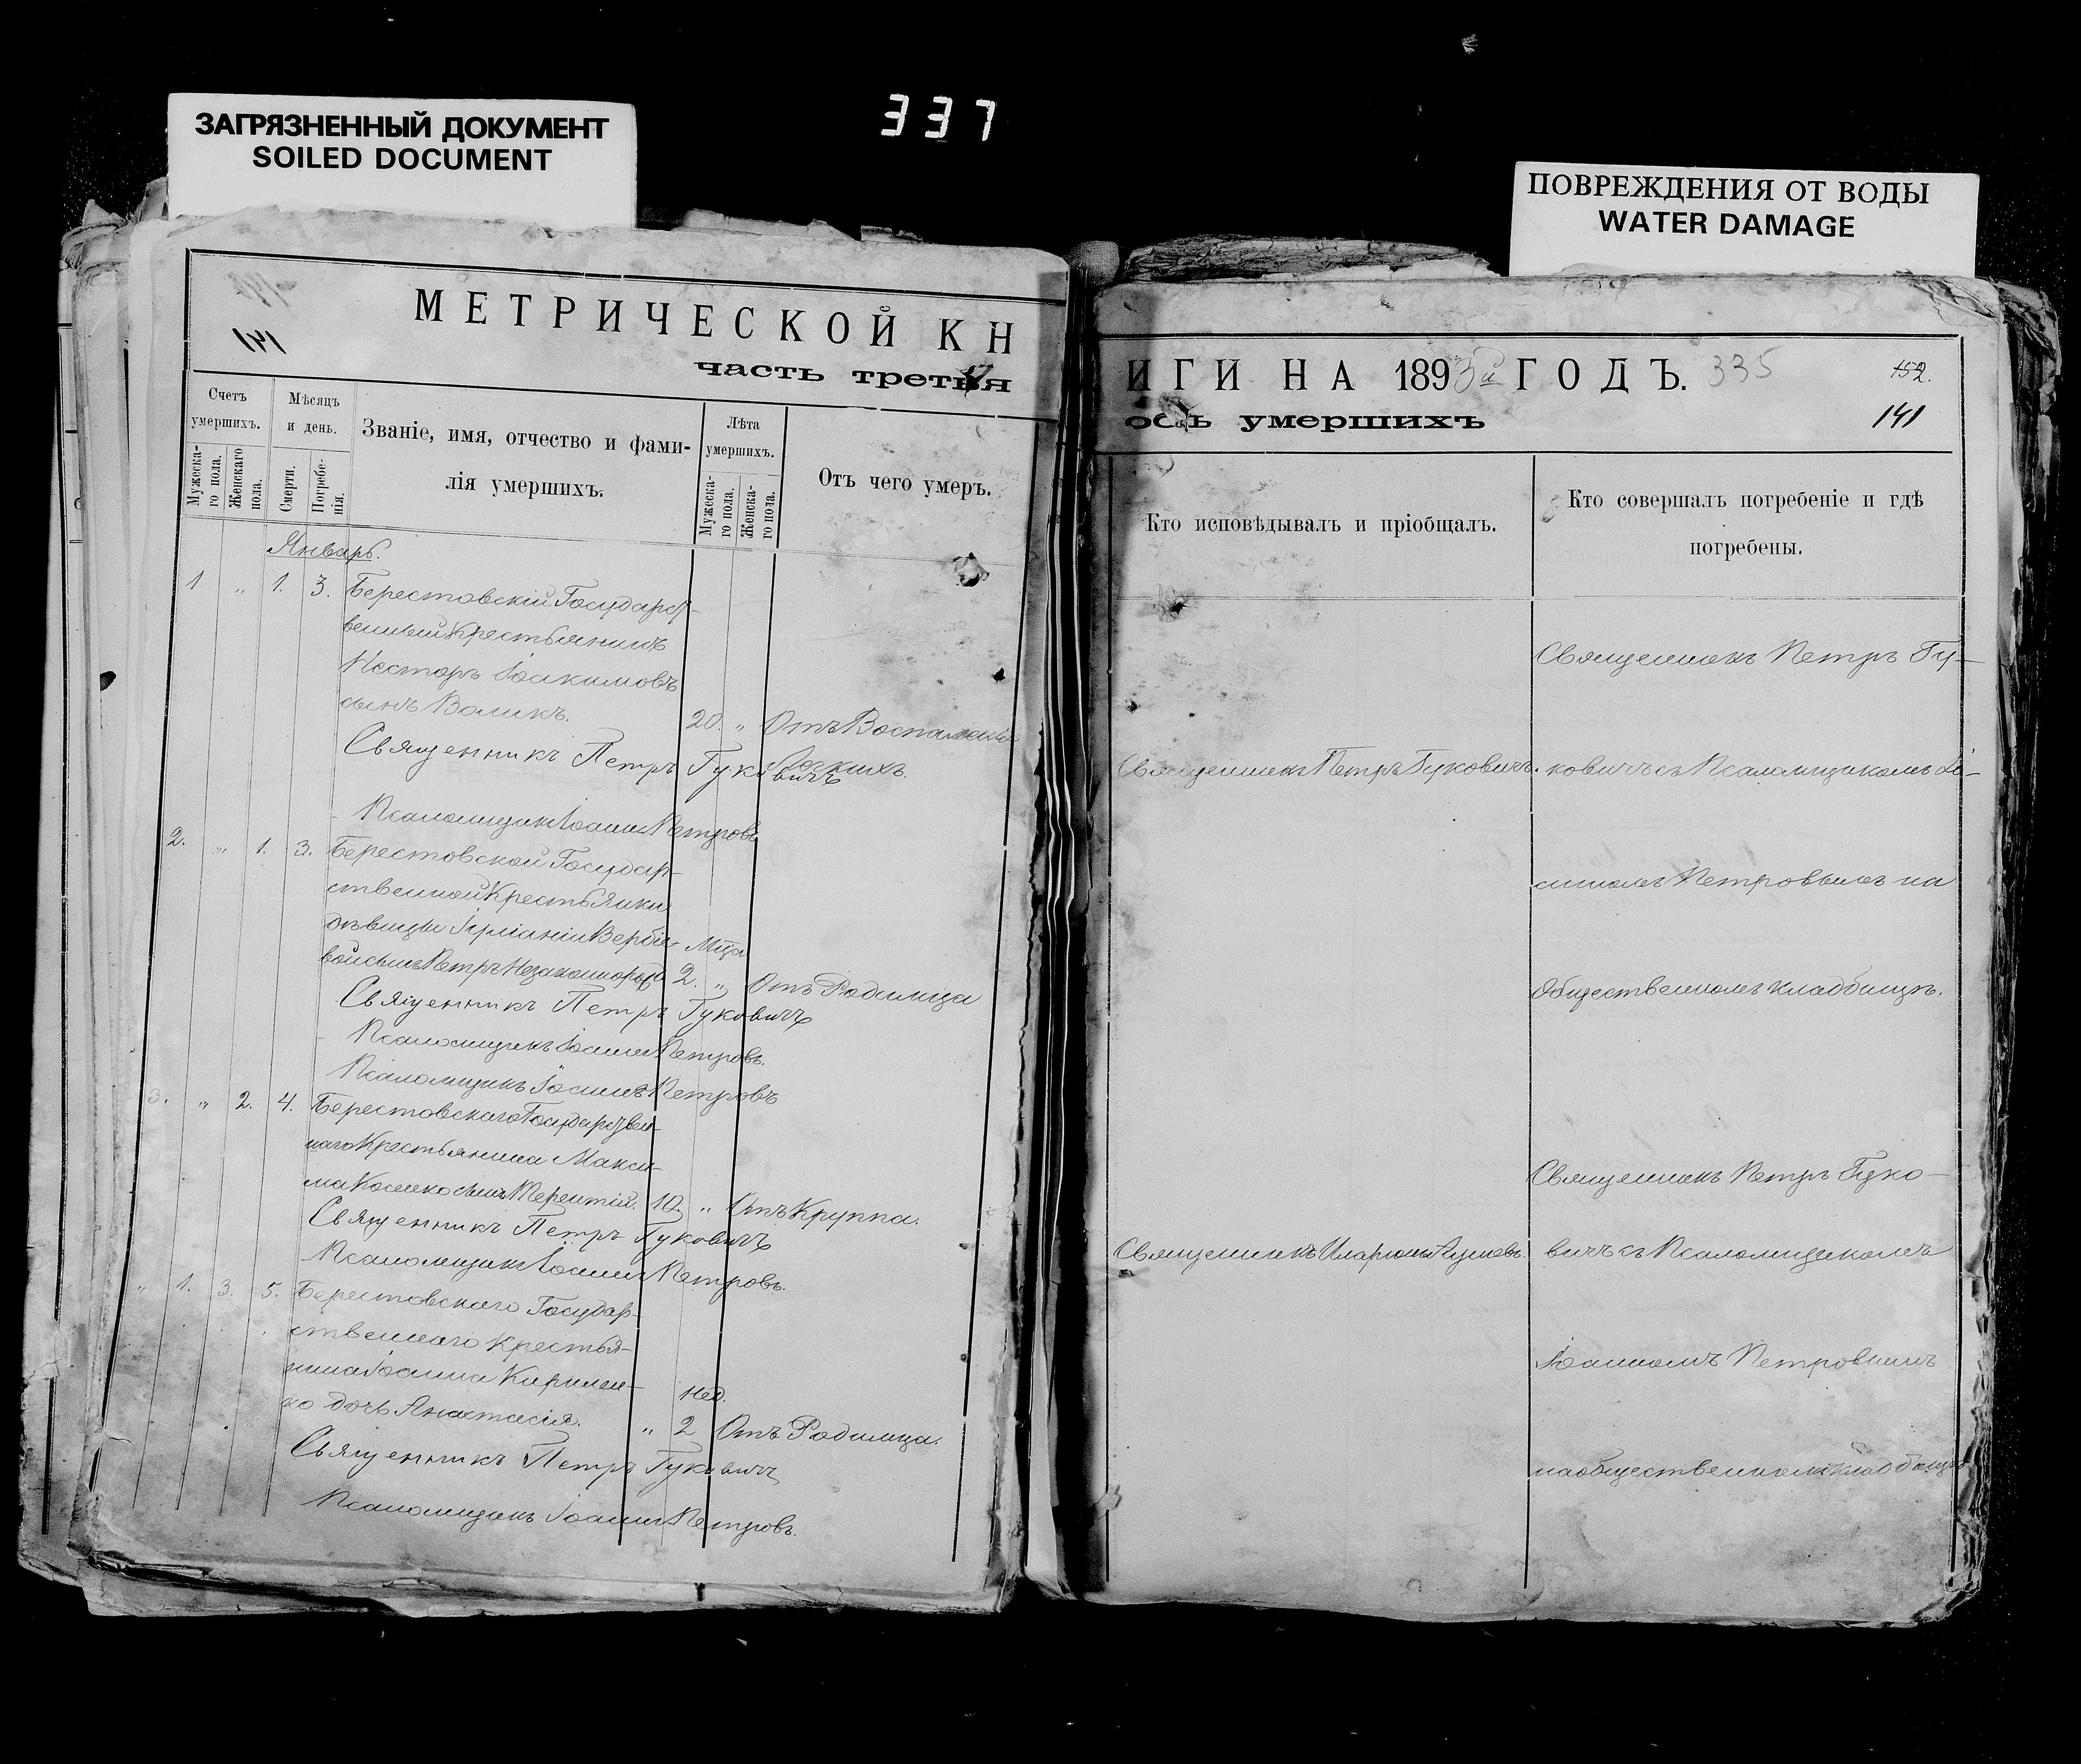 ЗАГРЯЗНЕННЫЙ ДОКУМЕНТ
SOILED DOCUMENT
337
ПОВРЕЖДЕНИЯ ОТ ВОДЫ
WATER DAMAGE
141
МЕТРИЧЕСКОЙ КН
часть третья
Счетъ умершихъ.
Мужеска-го пола.
Женскаго пола.
Мѣсяцъ и день.
Смерти.
Погребе-нія.
Званіе, имя, отчество и фами-
лія умершихъ.
Лѣта умершихъ.
Мужеска-го пола.
Женска-го пола.
Отъ чего умеръ.
Январь.
1 " 1. 3. Берестовскій Государст-
венный Крестьянинъ
Несторъ Іоакимовъ
сынъ Воликъ. 20. " Отъ Воспаленія
Легкихъ.
Священникъ Петръ Гуковичъ
Псаломщикъ Іоаннъ Петровъ
2. " 1. 3. Берестовской Государ-
ственной Крестьянки
дѣвицы Іуліаніи Мца
вой сынъ Петръ 2. " Отъ Родимца
Священникъ Петръ Гуковичъ
Псаломщикъ Іоаннъ Петровъ.
Псаломщикъ Іоаннъ Петровъ
3. " 2. 4. Берестовскаго Государствен-
наго Крестьянина Макси-
ма сынъ Терентій. 10. " Отъ Круппа.
Священникъ Петръ Гуковичъ
Псаломщикъ Іоаннъ Петровъ.
" 1. 3. 5. Берестовскаго Государ-
ственнаго Крестья-
нина Іоанна Кирилен- Нед.
ко дочь Анастасія. " 2 Отъ Родимца.
Священникъ Петръ Гуковичъ
Псаломщикъ Іоаннъ Петровъ.
ИГИ НА 1893й ГОДЪ. 335
152.
141
объ умершихъ
Кто исповѣдывалъ и пріобщалъ.
Кто совершалъ погребеніе и гдѣ
погребены.
Священникъ Петръ Гу-
Священникъ Петръ Гуковичъ. ковичъ съ Псаломщикомъ Іо-
анномъ Петровымъ на
Общественномъ кладбищѣ.
Священникъ Петръ Гуко-
Священникъ Иларіонъ вичъ съ Псаломщикомъ
Іоанномъ Петровымъ
на общественномъ кладбищѣ